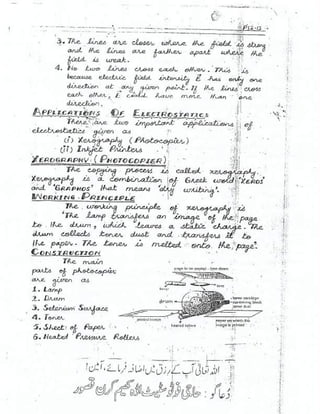 P12-13
3. The lines are closer where the field is strong
and the lines are farther apart where the
field is weak.
4. No two lines cross each other. This is
because electric field intensity E has only one
direction at any given point. If the lines cross
each other, E could have more than one
direction.
APPLICATIONS OF ELECTROSTATICS
There are two important applications of
electrostatics given as
(i) Xerography (Photocopier)
(ii) Inkjet Printers
XEROGRAPHY (PHOTOCOPIER)
The copying process is called xerography.
Xerography is a combination of Greek word "XEROS"
and "GRAPHOS" that means "dry writing".
WORKING PRINCIPLE
The working principle of xerography is
"The lamp transfers an image of the page
to the drum, which leaves a static charge. The
drum collects toner dust and transfers it to
the paper. The toner is melted onto the page".
CONSTRUCTION
The main
parts of photocopier
are given as
1. Lamp
2. Drum
3. Selenium Surface
4. Toner
5. Sheet of Paper
6. Heated Pressure Rollers
drum
heated rollers
اللہ تعالیٰ آپ کے رزق میں اضافہ فرمائے، آمین!
دُعاگو: حاجی فوٹو سٹیٹ